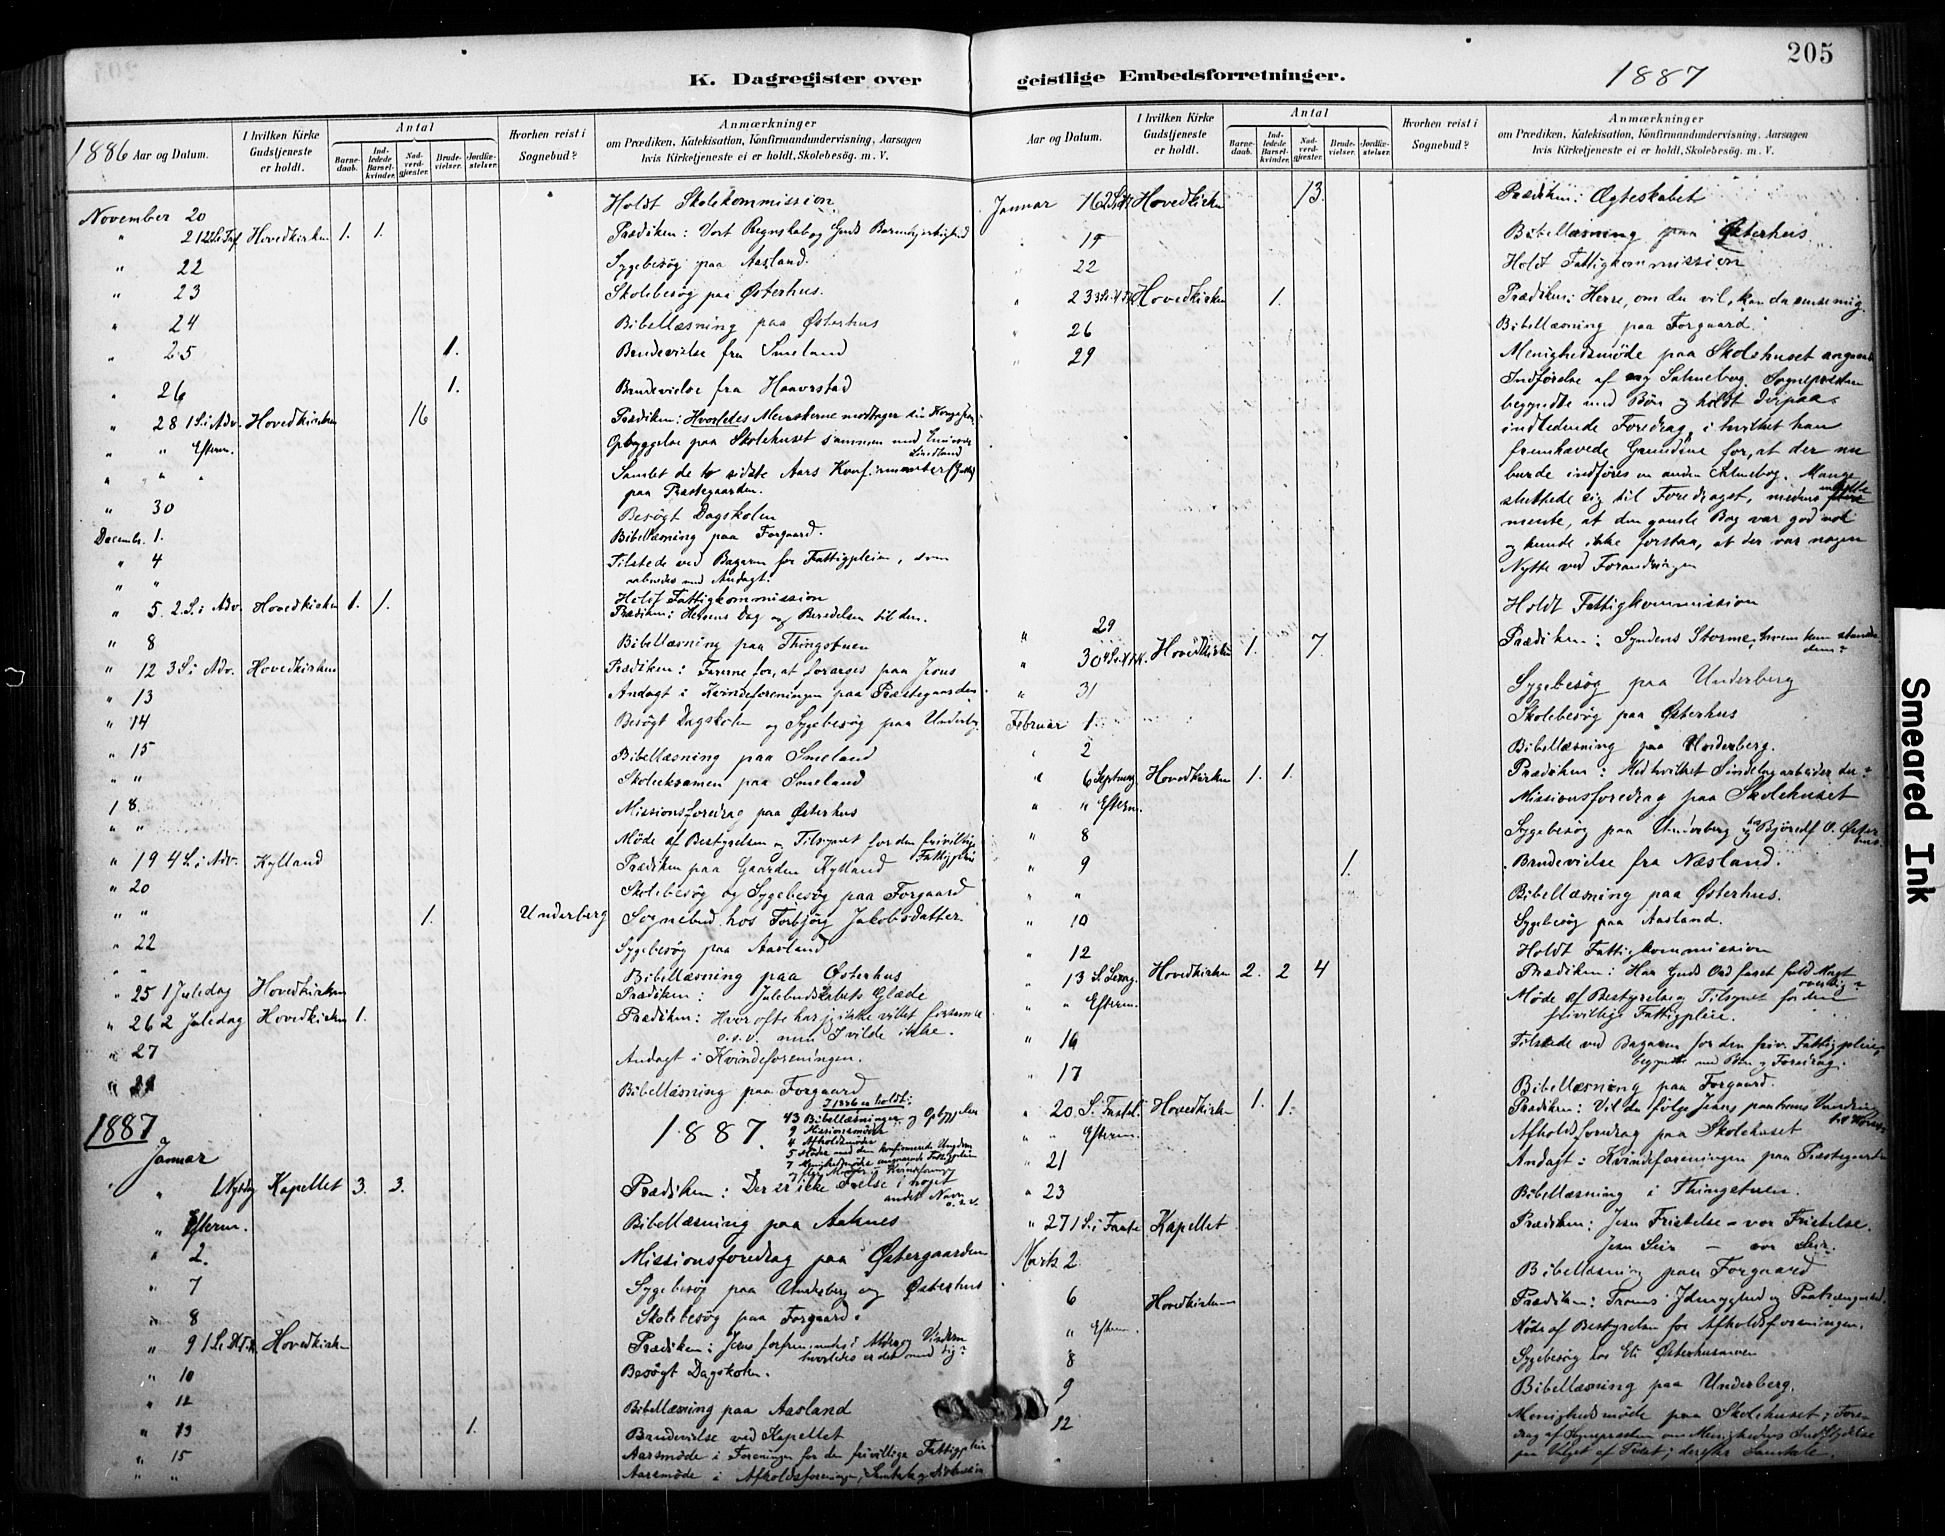 205
K. Dagregister over geistlige Embedsforretninger.
1887
1886 Aar og Datum.
I hvilken Kirke Gudstjeneste er holdt.
Antal
Barnedaab.
Indledede Barselkvinder.
Nadverdgjæster.
Brudevielser.
Jordfæstelser.
Hvorhen reist i Sognebud?
Anmærkninger
om Prædiken, Katekisation, Konfirmandundervisning, Aarsagen
hvis Kirketjeneste ei er holdt, Skolebesög. m. V.
November 20 Holdt Skolekommission
" 21 22 S. e. Tref. Hovedkirken 1. 1. Prædiken: Vort Regnskab og Guds Barmhjertighed
" 22 Sygebesøg paa Aasland.
" 23 Skolebesøg paa Østerhus.
" 24 Bibellæsning paa Østerhus
" 25 1. Brudevielse fra Smeland
" 26 1. Brudevielse fra Haavrstad
" 28 1 S. i Adv. Hovedkirken 16 Prædiken: Hvorledes Menskerne modtager sin Konge
" " Efterm. Opbyggelse paa Skolehuset sammen med
Lindland
" " " Samlet de to sidste Aars Konfirmanter
paa Præstegaarden.
" 30 Besøgt Dagskolen
Decembr. 1. Bibellæsning paa Forgaard.
" 4 Tilstede ved Bazaren for Fattigpleien, som
aabnedes med Andagt.
" " Holdt Fattigkommission
" 5. 2. S. i Adv. Hovedkirken 1. 1. Prædiken: Herrens Dag og Beredelsen til den.
" 8 Bibellæsning paa Thingstuen
" 12 3 S. i Adv. Hovedkirken Prædiken: Farerne for, at forarges paa Jesus
" 13 Andagt i Kvindeforeningen paa Præstegaarden
" 14 Besøgt Dagskolen og Sygebesøg paa Underberg
" 15 Bibellæsning paa Smeland
" " Skoleeksamen paa Smeland
18. Missionsforedrag paa Østerhus
" " Møde af Bestyrelsen og Tilsynet for den frivillige
Fattigpleie
" 19 4 S. i Adv. Kylland Prædiken paa Gaarden Kylland
" 20 Skolebesøg og Sygebesøg paa Forgaard
" " 1. Underberg Sognebud hos Torbjørg Jakobsdatter
" 22 Sygebesøg paa Aasland
" " Bibellæsning paa Østerhus
" 25 1 Juledag Hovedkirken Prædiken: Julebudskabets Glæde
" 26 2 Juledag Hovedkirken 1. Prædiken: Hvor ofte har jeg ikke villet forsamle
o.s.v. men I vilde ikke.
" 27 Andagt i Kvindeforeningen.
" 29 Bibellæsning paa Forgaard
I 1886 er holdt:
43 Bibellæsninger og Opbyggelser
9 Missionsmøder
4 Afholdsmøder
5 Møder med den konfirmerede Ungdom
7 Menighedsmøder angaaende Fattigpleie
1887 1887.
Januar
" 1 Nytsdg Kapellet 3. 3. Prædiken: Der er ikke Frelse i noget
andet Navn o.s.v.
" Efterm. Bibellæsning paa Aaknes
" 2. Missionsforedrag paa Østergaarden
" 7 Sygebesøg paa Underberg og Østerhus
" 8 Skolebesøg paa Forgaard.
" 9 1 S. e. H.3.K. Hovedkirken Prædiken: Jesus forfremmedes i Alder og Visdom
hvorledes er det med dig?
" 10 Besøgt Dagskolen.
" 12 Bibellæsning paa Aasland
" 13 1. Brudevielse ved Kapellet
" 15 Aarsmøde i Foreningen for den frivillige Fattigpleie
" " Aarsmøde i Afholdsforeningen, Samtale og
Aar og Datum.
I hvilken Kirke Gudstjeneste er holdt.
Antal
Barnedaab.
Indledede Barselkvinder.
Nadverdgjæster.
Brudevielser.
Jordfæstelser.
Hvorhen reist i Sognebud?
Anmærkninger
om Prædiken, Katekisation, Konfirmandundervisning, Aarsagen
hvis Kirketjeneste ei er holdt, Skolebesög. m. V.
Januar 16 Hovedkirken 13. Prædiken: Ægteskabet
" 19 Bibellæsning paa Østerhus
" 22 Holdt Fattigkommission
" 23 Hovedkirken 1. Prædiken: Herre, om du vil, kan du rense mig
" 26 Bibellæsning paa Forgaard.
" 29 Menighedsmøde paa Skolehuset angaaende
Indførelse af ny Salmebog. Sognepræsten
begyndte med Bøn og holdt derpaa
indledende Foredrag, i hvilket han
fremhævede Grundene for, at der nu
burde indføres en anden Salmebog. Mange
sluttede sig til Foredraget, medens
mente, at den gamle Bog var god nok
og kunde ikke forstaa, at der var nogen
Nytte ved Forandringen
" 29 Holdt Fattigkommission
" 30 Hovedkirken 1. 7. Prædiken: Syndens Storme, hvem kan standse
dem?
" 31 Sygebesøg paa Underberg
Februar 1. Skolebesøg paa Østerhus
" 2 Bibellæsning paa Underberg.
" 6 Septuag. Hovedkirken 1. 1. Prædiken: Med hvilket Sindelag arbeider du?
" " Efterm. Missionsforedrag paa Skolehuset
" 8 Sygebesøg paa Underberg, og hos Bjørulf O. Østerhus.
" 9 1. Brudevielse fra Næsland.
" " Bibellæsning paa Østerhus.
" 10 Sygebesøg paa Aasland.
" 12 Holdt Fattigkommission
" 13 S. Sexag. Hovedkirken 2. 2 4 Prædiken: Har Guds Ord faaet fuld Magt
over dig?
" " Efterm. Møde af Bestyrelse og Tilsynet for den
frivillige Fattigpleie.
" 16 Tilstede ved Bazaren for den friv. Fattigpleie,
begyndte med Bøn og Foredrag.
" 17 Bibellæsning paa Forgaard.
" 20 S. Fastel. Hovedkirken 1. 1. Prædiken: Vil du følge Jesus paa hans Vandring
" " Efterm. Afholdsforedrag paa Skolehuset
" 21 Andagt i Kvindeforeningen paa Præstegaarden
" 23 Bibellæsning i Thingstuen.
" 27 1 S. i Faste Kapellet Prædiken: Jesu Fristelse – vor Fristelse.
Jesu Seir – vor Seir.
Marts 2 Bibellæsning paa Forgaard
6 Hovedkirken Prædiken: Troens Ydmyghed og Paatrængenhed.
" Efterm. Møde af Bestyrelsen for Afholdsforeningen.
8 Sygebesøg hos Eli Østerhusmoen
9 Bibellæsning paa Underberg.
12 Menighedsmøde paa Skolehuset; Foredrag
af Sognepræsten om Menighedens Indflydelse
paa Valget af Præst; derefter Samtale.
Smeared Ink